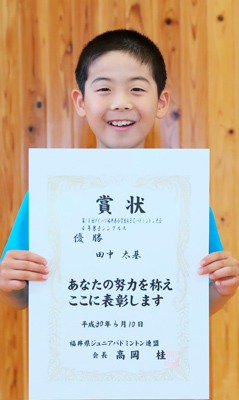 賞状
4年男子シングルス
優勝
田中 大基
あなたの努力を称え
ここに表彰します
平成30年6月10日
福井県ジュニアバドミントン連盟
会長 高岡 桂